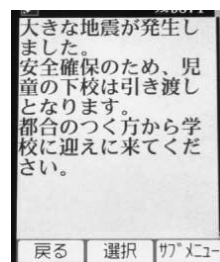 大きな地震が発生し
ました。
安全確保のため、児
童の下校は引き渡し
となります。
都合のつく方から学
校に迎えに来てくだ
さい。
戻る 選択 ｻﾌﾞﾒﾆｭｰ